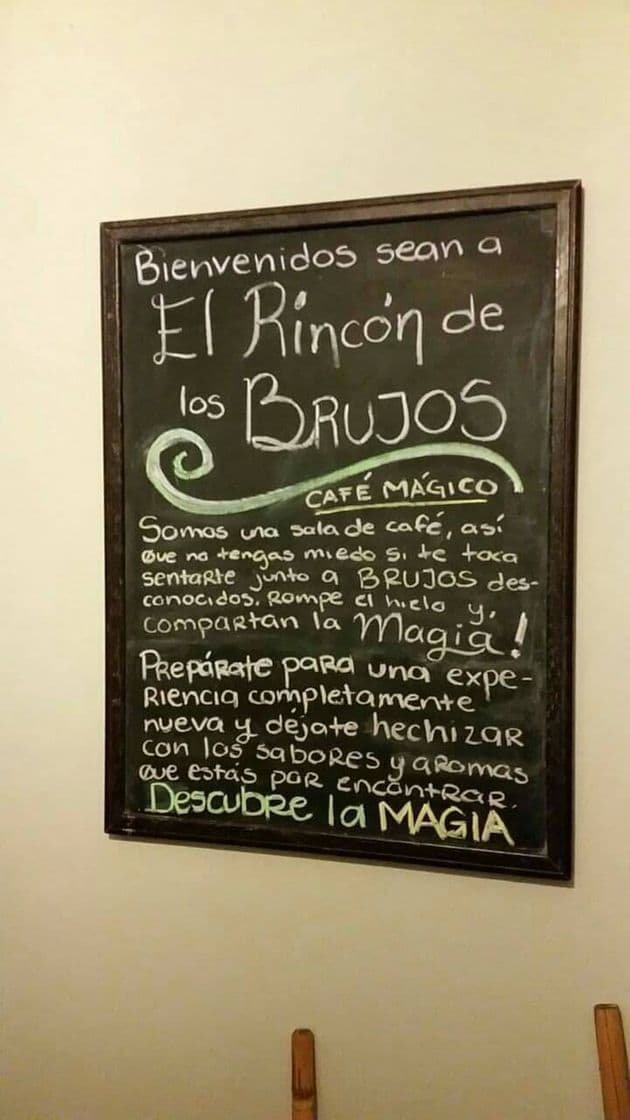 Bienvenidos sean a
El Rincón de
los BRUJOS
CAFÉ MÁGICO
Somos una sala de café, así
que no tengas miedo si te toca
sentarte junto a BRUJOS des-
conocidos. Rompe el hielo y,
compartan la Magia!
Prepárate para una expe-
riencia completamente
nueva y déjate hechizar
con los sabores y aromas
que estás por encontrar.
Descubre la MAGIA